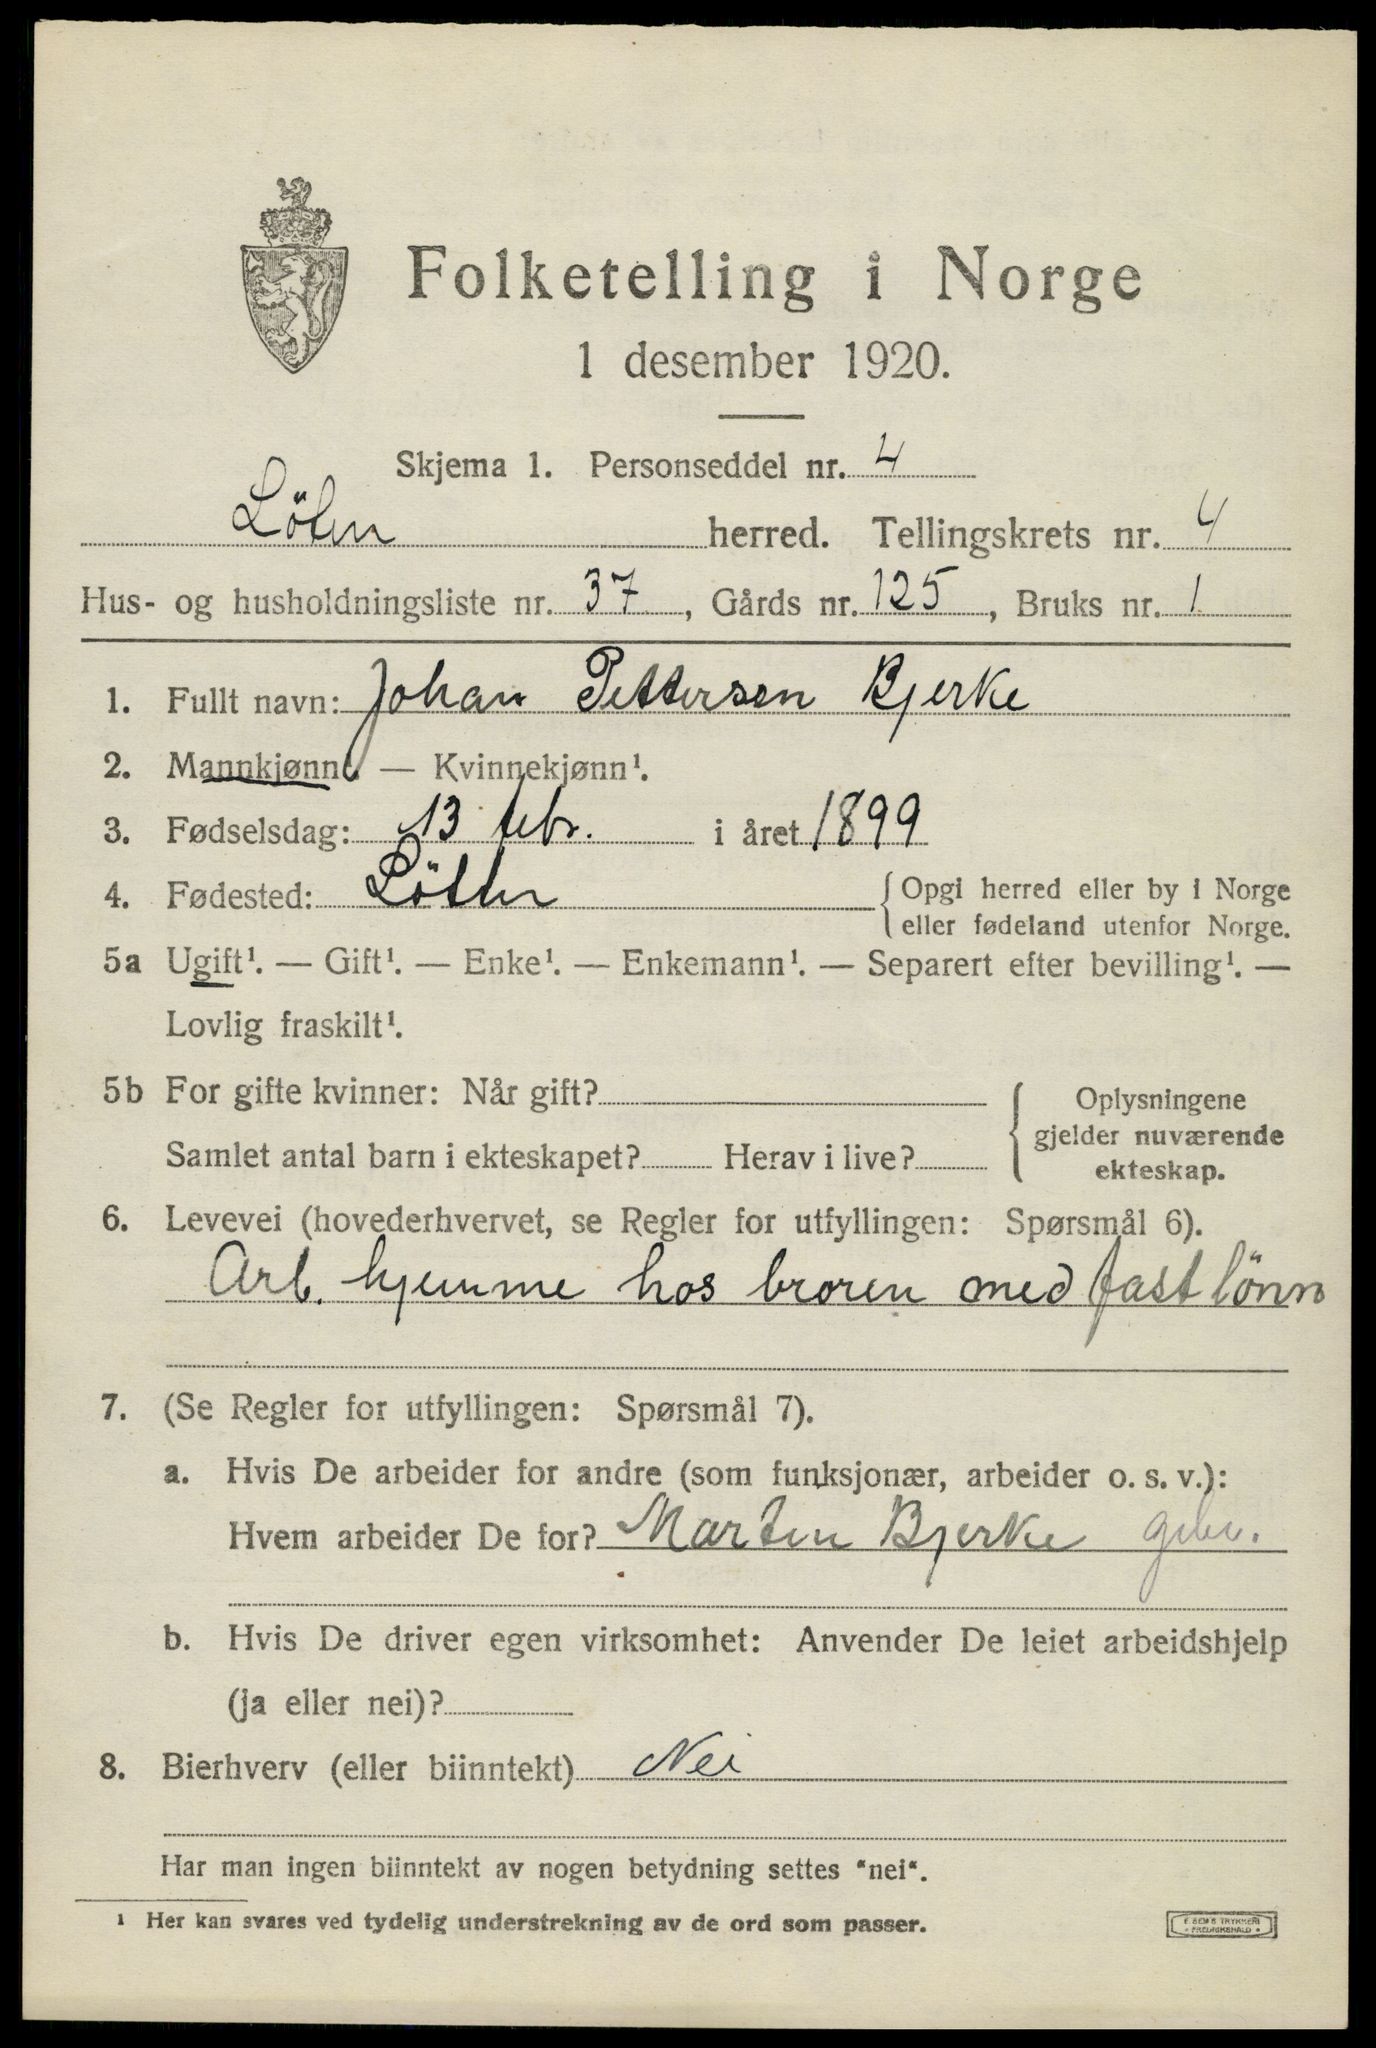 Folketelling i Norge
1 desember 1920.
Skjema 1. Personseddel nr. 4
Löten herred. Tellingskrets nr. 4
Hus- og husholdningsliste nr. 37, Gårds nr. 125, Bruks nr. 1
1. Fullt navn: Johan Pettersen Bjerke
2. Mannkjønn¹. — Kvinnekjønn¹.
3. Fødselsdag: 13 febr. i året 1899
4. Fødested: Löten { Opgi herred eller by i Norge
eller fødeland utenfor Norge.
5a Ugift¹. — Gift¹. — Enke¹. — Enkemann¹. — Separert efter bevilling¹. —
Lovlig fraskilt¹.
5b For gifte kvinner: Når gift? { Oplysningene
gjelder nuværende
Samlet antal barn i ekteskapet? Herav i live? ekteskap.
6. Levevei (hovederhvervet, se Regler for utfyllingen: Spørsmål 6).
Arb. hjemme hos broren med fast lönn
7. (Se Regler for utfyllingen: Spørsmål 7).
a. Hvis De arbeider for andre (som funksjonær, arbeider o. s. v.):
Hvem arbeider De for? Martin Bjerke
b. Hvis De driver egen virksomhet: Anvender De leiet arbeidshjelp
(ja eller nei)?
8. Bierhverv (eller biinntekt) Nei
Har man ingen biinntekt av nogen betydning settes "nei".
¹ Her kan svares ved tydelig understrekning av de ord som passer.
E. SEM'S TRYKKERI
FREDRIKSHALD